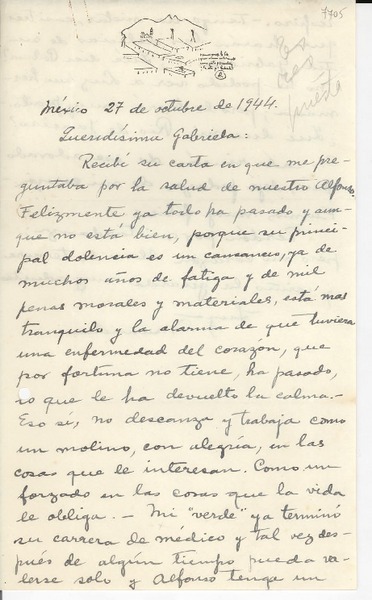 7705
México 27 de octubre de 1944.
Queridísima Gabriela:
Recibí su carta en que me pre-
guntaba por la salud de nuestro Alfonso.
Felizmente ya todo ha pasado y aun-
que no está bien, porque su princi-
pal dolencia es un cansancio, ya de
muchos años de fatiga y de mil
penas morales y materiales, está mas
tranquilo y la alarma de que tuviera
una enfermedad del corazón, que
por fortuna no tiene, ha pasado,
lo que le ha devuelto la calma.-
Eso sí, no descanza y trabaja como
un molino, con alegría, en las
cosas que le interesan. Como un
forzado en las cosas que la vida
le obliga. - Mi "verde" ya terminó
su carrera de médico y tal vez des-
pués de algún tiempo pueda va-
lerse solo y Alfonso tenga un